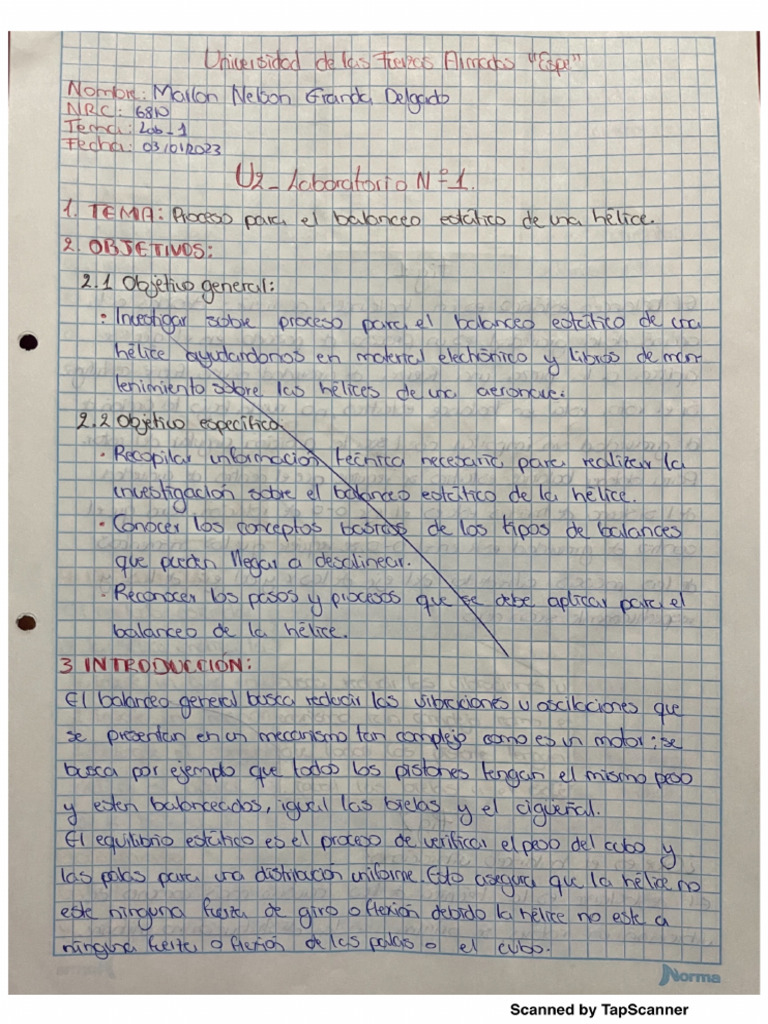 Universidad de las Fuerzas Armadas "Espe"
Nombre: Marlon Nelson Granda Delgado
NRC: 6810
Tema: Lab_1
Fecha: 03/01/2023
U2_ Laboratorio Nº1.
1. TEMA: Proceso para el balanceo estático de una hélice.
2. OBJETIVOS:
2.1 Objetivo general:
• Investigar sobre proceso para el balanceo estático de una
hélice ayudandonos en material electrónico y libros de man
tenimiento sobre las hélices de una aeronave.
2.2 Objetivo específico.
• Recopilar información técnica necesaria para realizar la
investigación sobre el balanceo estático de la hélice.
• Conocer los conceptos basicos de los tipos de balances
que pueden llegar a desalinear.
• Reconocer los pasos y procesos que se debe aplicar para el
balanceo de la hélice.
3 INTRODUCCIÓN:
El balanceo general busca reducir las vibraciones u oscilaciones que
se presentan en un mecanismo tan complejo como es un motor; se
busca por ejemplo que todos los pistones tengan el mismo peso
y esten balanceados, igual las bielas y el cigueñal.
El equilibrio estático es el proceso de verificar el peso del cubo y
las palas para una distribución uniforme. Esto asegura que la hélice no
este ninguna fuerta de giro o flexión debido la hélice no este a
ninguna fuerta o flexión de las palas o el cubo.
Norma
Scanned by TapScanner